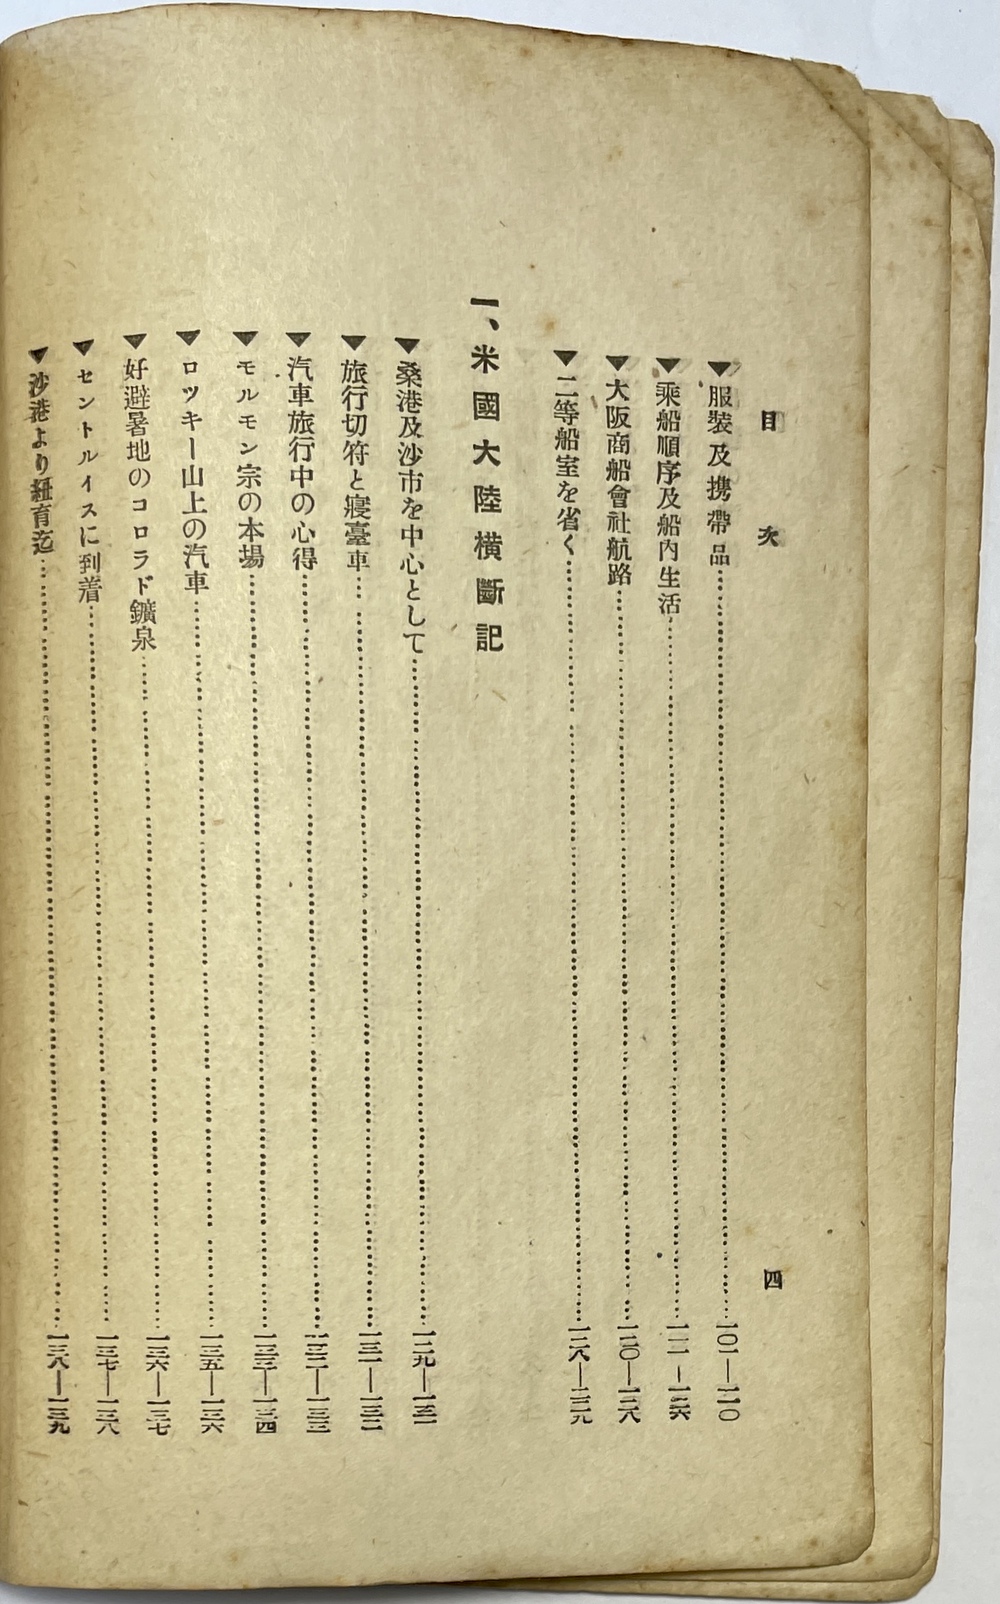 目次 四
▼服裝及携帶品……一〇一—一一〇
▼乘船順序及船内生活……一一一—
▼大阪商船會社航路……一二〇—一二八
▼二等船室を省く……一二八—一二九
一、米國大陸横斷記
▼桑港及沙市を中心として……一二九—
▼旅行切符と寢臺車……一三一—一三二
▼汽車旅行中の心得……一三二—一三三
▼モルモン宗の本場……一三三—一三四
▼ロツキー山上の汽車……一三五—一三六
▼好避暑地のコロラド鑛泉……一三六—一三七
▼セントルイスに到着……一三七—一三八
▼沙港より紐育迄……一三八—一三九